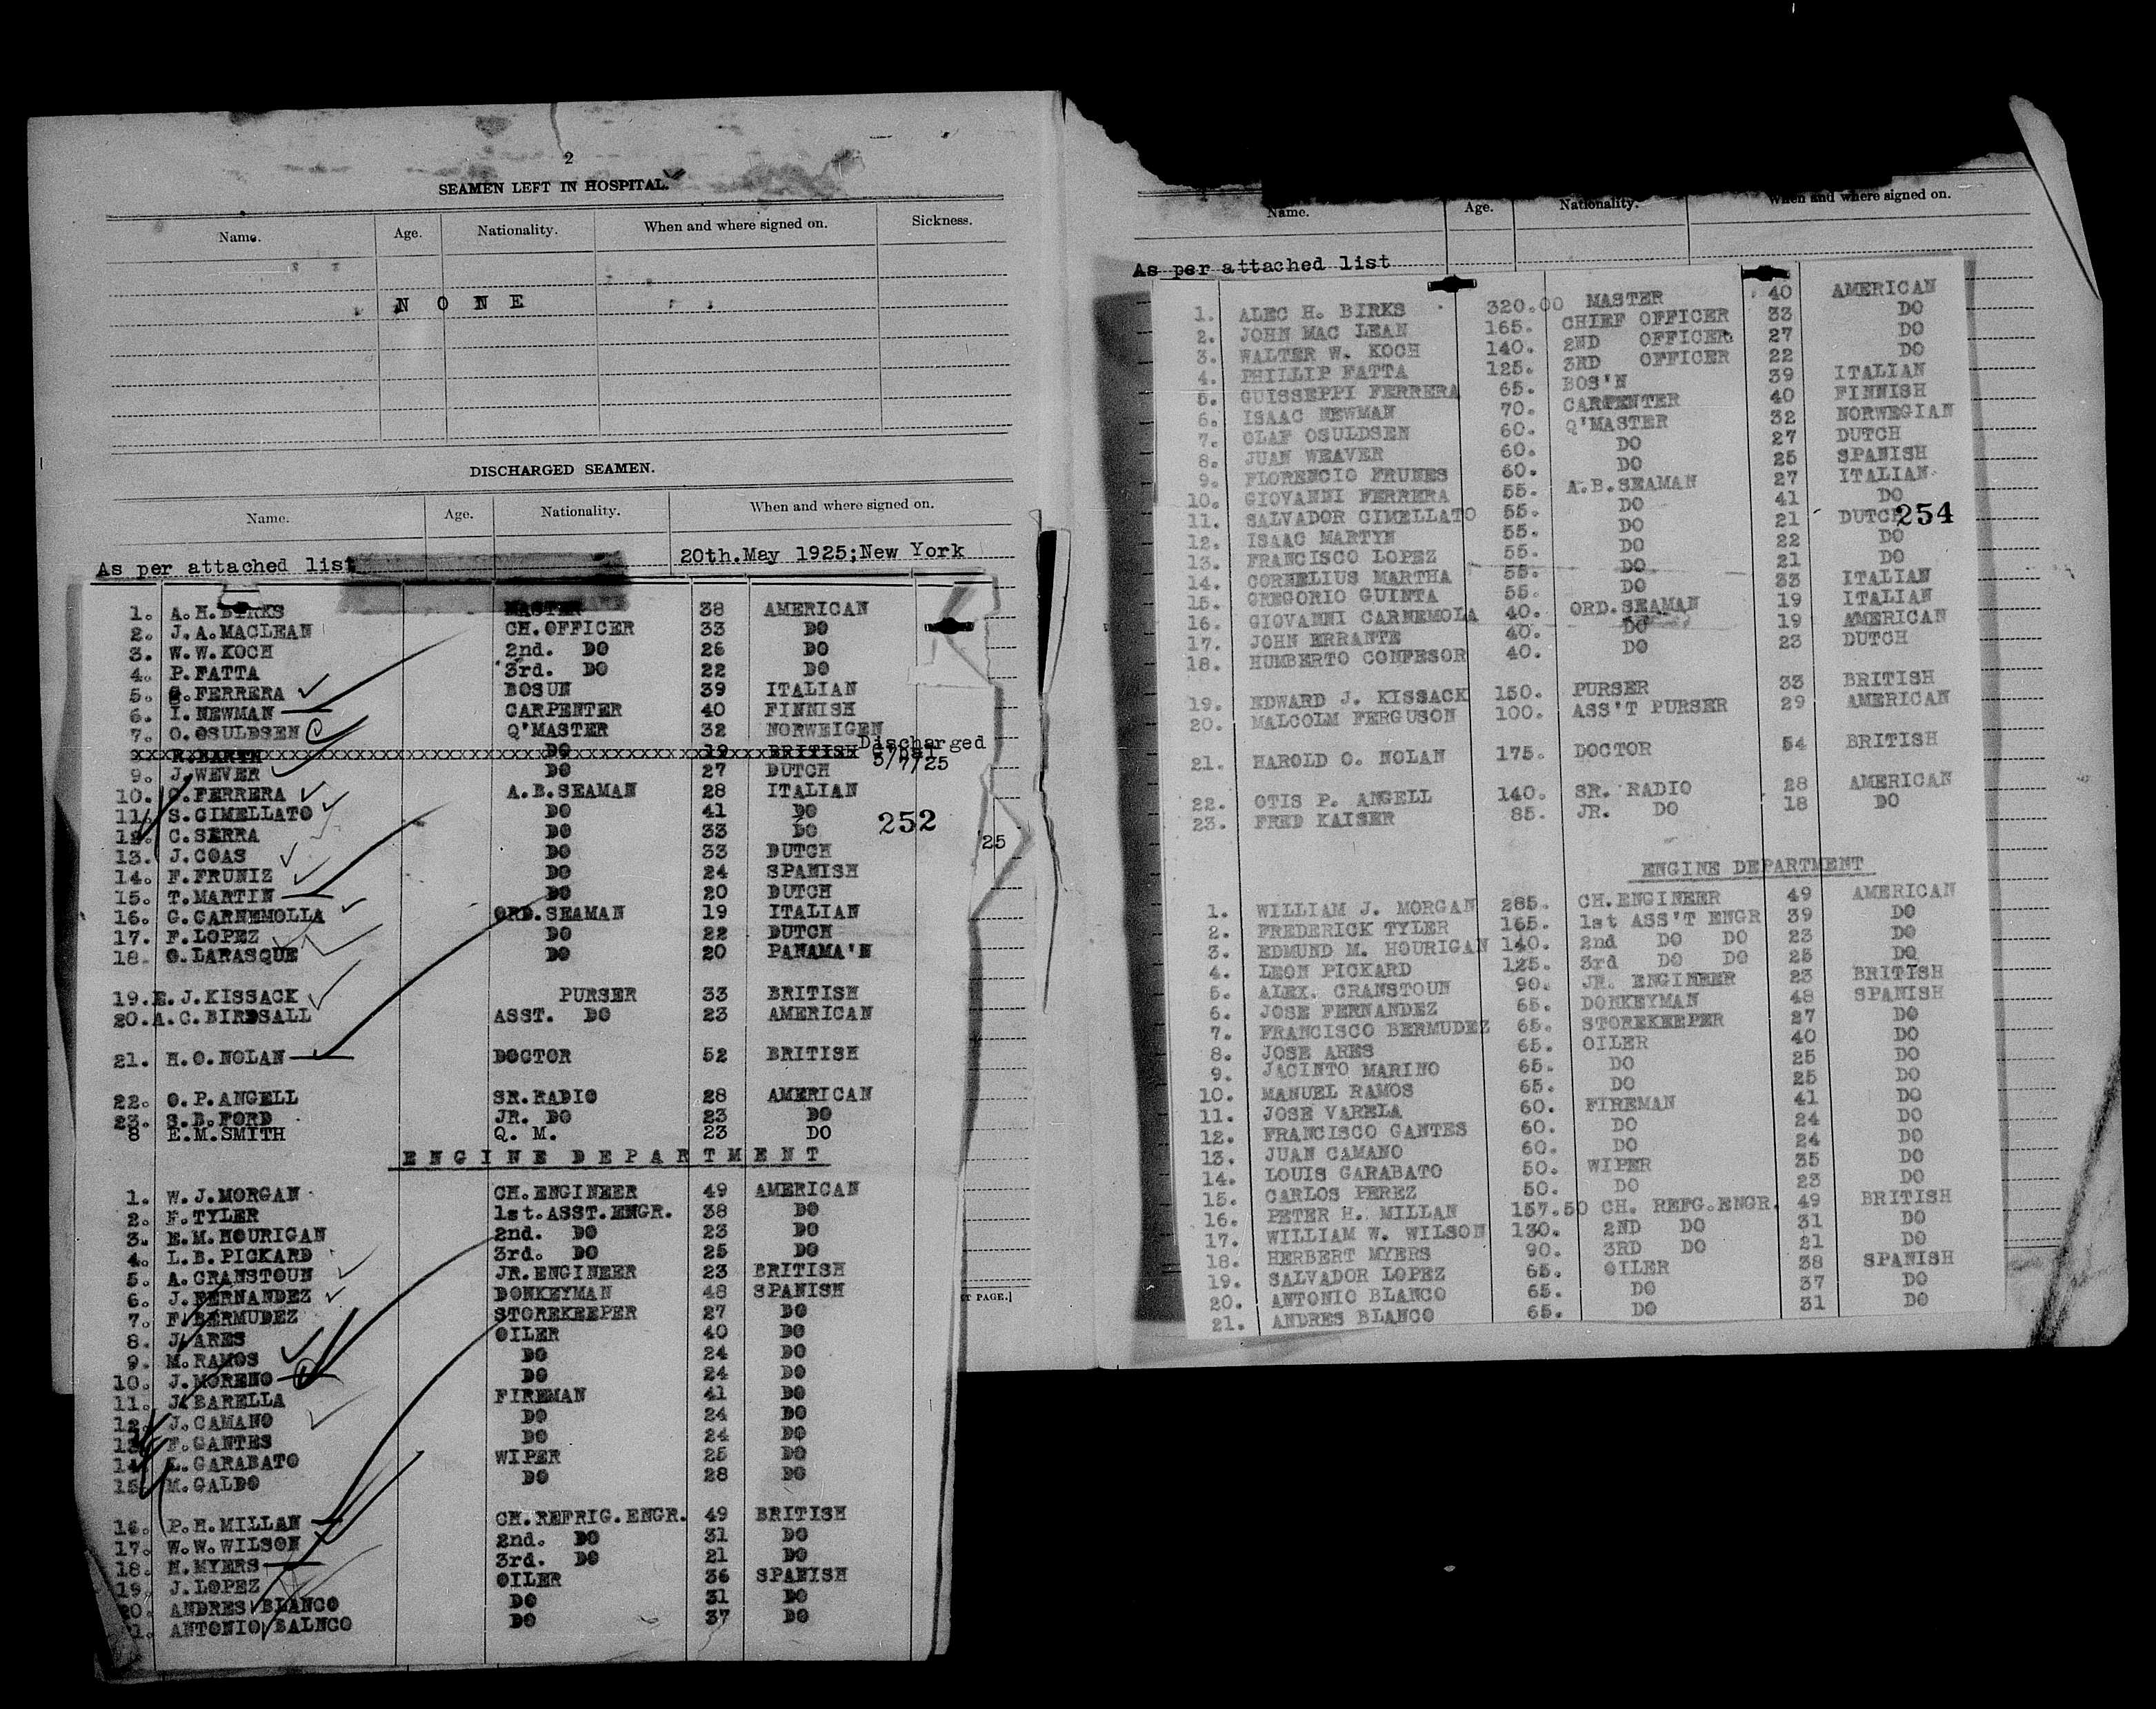 2
SEAMEN LEFT IN HOSPITAL.
Name. Age. Nationality. When and where signed on. Sickness.
N O N E
DISCHARGED SEAMEN.
Name. Age. Nationality. When and where signed on.
As per attached list 20th.May 1925;New York
1. A.H.BIRKS MASTER 38 AMERICAN
2. J.A.MACLEAN CH.OFFICER 33 DO
3. W.W.KOCH 2nd. DO 26 DO
4. P.FATTA 3rd. DO 22 DO
5. G.FERRERA BOSUN 39 ITALIAN
6. I.NEWMAN CARPENTER 40 FINNISH
7. O.OSULDSEN Q'MASTER 32 NORWEIGEN
R.BARTH DO 19 BRITISH Discharged 5/7/25
9. J.WEVER DO 27 DUTCH
10. G.FERRERA A.B.SEAMAN 28 ITALIAN
11. S.CIMELLATO DO 41 DO
12. C.SERRA DO 33 DO
252
25
13. J.COAS DO 33 DUTCH
14. F.FRUNIZ DO 24 SPANISH
15. T.MARTIN DO 20 DUTCH
16. G.CARNEMOLLA ORD.SEAMAN 19 ITALIAN
17. F.LOPEZ DO 22 DUTCH
18. O.LARASQUE DO 20 PANAMA'N
19. E.J.KISSACK PURSER 33 BRITISH
20. A.C.BIRDSALL ASST. DO 23 AMERICAN
21. H.O.NOLAN DOCTOR 52 BRITISH
22. O.P.ANGELL SR.RADIO 28 AMERICAN
23. S.B.FORD JR. DO 23 DO
8 E.M.SMITH Q. M. 23 DO
E N G I N E D E P A R T M E N T
1. W.J.MORGAN CH.ENGINEER 49 AMERICAN
2. F.TYLER 1st.ASST.ENGR. 38 DO
3. E.M.HOURIGAN 2nd. DO 23 DO
4. L.B.PICKARD 3rd. DO 25 DO
5. A.CRANSTOUN JR.ENGINEER 23 BRITISH
6. J.FERNANDEZ DONKEYMAN 48 SPANISH
7. F.BERMUDEZ STOREKEEPER 27 DO
8. J.ARES OILER 40 DO
9. M.RAMOS DO 24 DO
10. J.MORENO DO 24 DO
11. J.BARELLA FIREMAN 41 DO
12. J.CAMANO DO 24 DO
13. F.GANTES DO 24 DO
14. L.GARABATO WIPER 25 DO
15. M.GALDO DO 28 DO
16. P.H.MILLAN CH.REFRIG.ENGR. 49 BRITISH
17. W.W.WILSON 2nd. DO 31 DO
18. H.MYERS 3rd. DO 21 DO
19. J.LOPEZ OILER 36 SPANISH
20. ANDRES BLANCO DO 31 DO
1. ANTONIO BALNCO DO 37 DO
T PAGE.]
Name. Age. Nationality. When and where signed on.
As per attached list
1. ALEC H. BIRKS 320.00 MASTER 40 AMERICAN
2. JOHN MAC LEAN 165. CHIEF OFFICER 33 DO
3. WALTER W. KOCH 140. 2ND OFFICER 27 DO
4. PHILLIP FATTA 125. 3RD OFFICER 22 DO
5. GUISSEPPI FERRERA 65. BOS'N 39 ITALIAN
6. ISAAC NEWMAN 70. CARPENTER 40 FINNISH
7. OLAF OSULDSEN 60. Q'MASTER 32 NORWEGIAN
8. JUAN WEAVER 60. DO 27 DUTCH
9. FLORENCIO FRUNES 60. DO 25 SPANISH
10. GIOVANNI FERRERA 55. A.B.SEAMAN 27 ITALIAN
11. SALVADOR CIMELLATO 55. DO 41 DO
12. ISAAC MARTYN 55. DO 21 DUTCH
254
13. FRANCISCO LOPEZ 55. DO 22 DO
14. CORNELIUS MARTHA 55. DO 21 DO
15. GREGORIO GUINTA 55. DO 33 ITALIAN
16. GIOVANNI CARNEMOLA 40. ORD.SEAMAN 19 ITALIAN
17. JOHN ERRANTE 40. DO 19 AMERICAN
18. HUMBERTO CONFESOR 40. DO 23 DUTCH
19. EDWARD J. KISSACK 150. PURSER 33 BRITISH
20. MALCOLM FERGUSON 100. ASS'T PURSER 29 AMERICAN
21. HAROLD O. NOLAN 175. DOCTOR 54 BRITISH
22. OTIS P. ANGELL 140. SR. RADIO 28 AMERICAN
23. FRED KAISER 85. JR. DO 18 DO
ENGINE DEPARTMENT
1. WILLIAM J. MORGAN 285. CH.ENGINEER 49 AMERICAN
2. FREDERICK TYLER 165. 1st ASS'T ENGR 39 DO
3. EDMUND M. HOURIGAN 140. 2nd DO DO 23 DO
4. LEON PICKARD 125. 3rd DO DO 25 DO
5. ALEX. CRANSTOUN 90. JR. ENGINEER 23 BRITISH
6. JOSE FERNANDEZ 65. DONKEYMAN 48 SPANISH
7. FRANCISCO BERMUDEZ 65. STOREKEEPER 27 DO
8. JOSE ARES 65. OILER 40 DO
9. JACINTO MARINO 65. DO 25 DO
10. MANUEL RAMOS 65. DO 25 DO
11. JOSE VARELA 60. FIREMAN 41 DO
12. FRANCISCO GANTES 60. DO 24 DO
13. JUAN CAMANO 60. DO 24 DO
14. LOUIS GARABATO 50. WIPER 35 DO
15. CARLOS PEREZ 50. DO 23 DO
16. PETER H. MILLAN 157.50 CH. REFG.ENGR. 49 BRITISH
17. WILLIAM W. WILSON 130. 2ND DO 31 DO
18. HERBERT MYERS 90. 3RD DO 21 DO
19. SALVADOR LOPEZ 65. OILER 38 SPANISH
20. ANTONIO BLANCO 65. DO 37 DO
21. ANDRES BLANCO 65. DO 31 DO